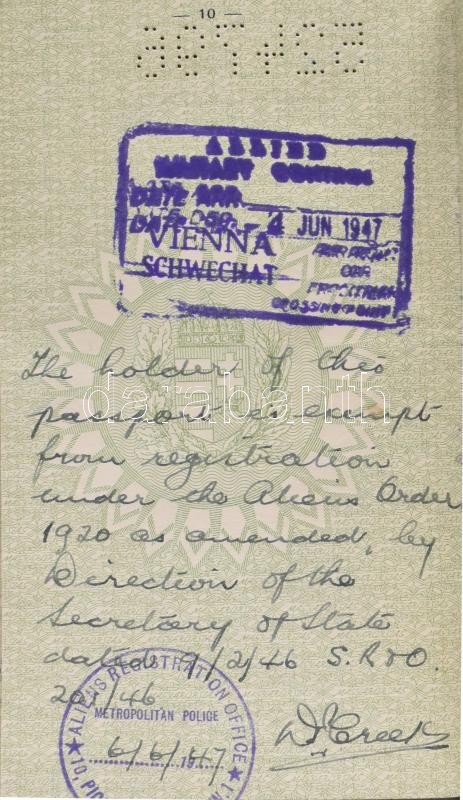 — 10 —
524796
ALLIED
MILITARY CONTROL
DATE ARR.
DATE DEP. 4 JUN 1947
VIENNA
SCHWECHAT
CROSSING POINT
The holder of this
passport is exempt
from registration
under the Aliens Order
1920 as amended, by
Direction of the
Secretary of State
dated 9/2/46 S.R&O.
/46
ALIENS REGISTRATION OFFICE
METROPOLITAN POLICE
6/6/1947
10, PIC
darabanth